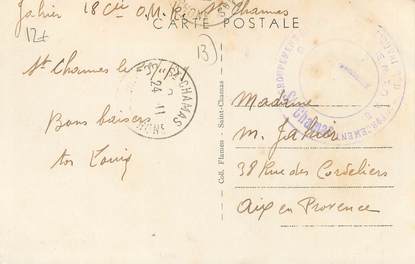 Jahier 18 Cie O.M.R. St Chamas
CARTE POSTALE
12+
13
St Chamas le
Bons baisers
ton Louis
Coll. Flamen - Saint-Chamas
ST CHAMAS
24 11
Madame
M. Jahier
38 Rue des Cordeliers
Aix en Provence